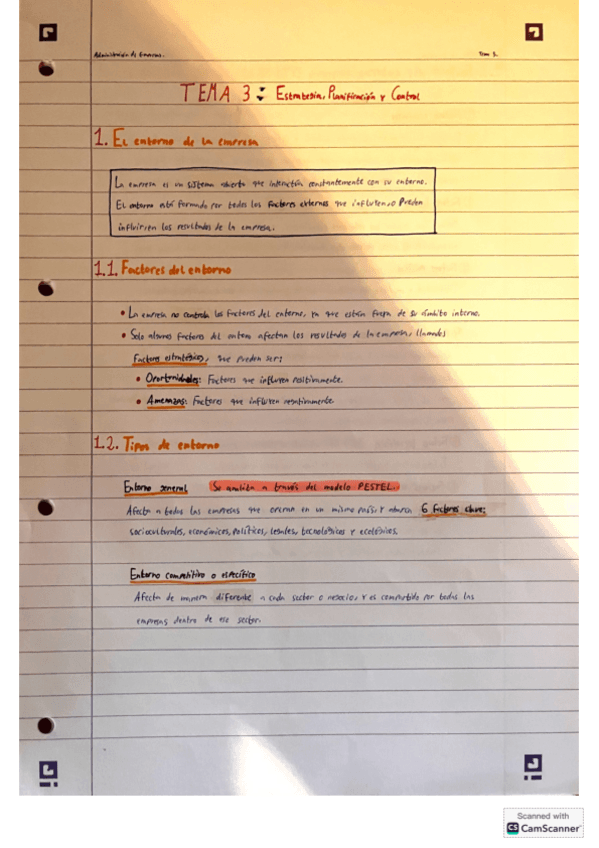 Administración de Empresas.
Tema 3.
TEMA 3: Estrategia, Planificación y Control
1. El entorno de la empresa
La empresa es un sistema abierto que interactúa constantemente con su entorno.
El entorno está formado por todos los factores externos que influyen o pueden
influir en los resultados de la empresa.
1.1. Factores del entorno
• La empresa no controla los factores del entorno, ya que están fuera de su ámbito interno.
• Solo algunos factores del entorno afectan los resultados de la empresa, llamados
Factores estratégicos, que pueden ser:
• Oportunidades: Factores que influyen positivamente.
• Amenazas: Factores que influyen negativamente.
1.2. Tipos de entorno
Entorno general Se analiza a través del modelo PESTEL.
Afecta a todas las empresas que operan en un mismo país y abarca 6 factores clave:
socioculturales, económicos, políticos, legales, tecnológicos y ecológicos.
Entorno competitivo o específico
Afecta de manera diferente a cada sector o negocio, y es compartido por todas las
empresas dentro de ese sector.
Scanned with
CS CamScanner